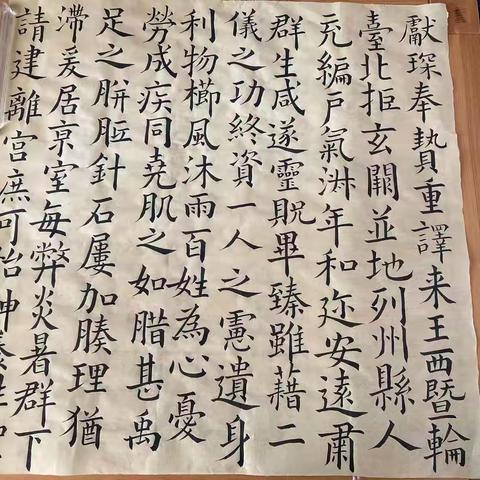 獻琛奉贄重譯来王西暨輪
臺北拒玄闕並地列州縣人
充編戶氣淑年和迩安遠肅
群生咸遂靈貺畢臻雖藉二
儀之功終資一人之慮遺身
利物櫛風沐雨百姓為心憂
勞成疾同堯肌之如腊甚禹
足之胼胝針石屢加腠理猶
滯爰居京室每弊炎暑群下
請建離宮庶可怡神養